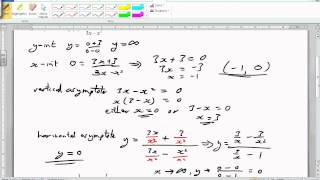 3x - x²
y-int y = 0+3/0-0 y = ∞
x-int 0 = 3x+3/3x-x² ⇒ 3x+3 = 0
3x = -3
x = -1
(-1, 0)
vertical asymptote 3x - x² = 0
x(3-x) = 0
either x = 0 or 3-x = 0
x = 3
horizontal asymptote y = 3x/x² + 3/x² / 3x/x² - x²/x² ⇒ y =
y = 0
x → ∞, y → 0-0/0-1 = 0